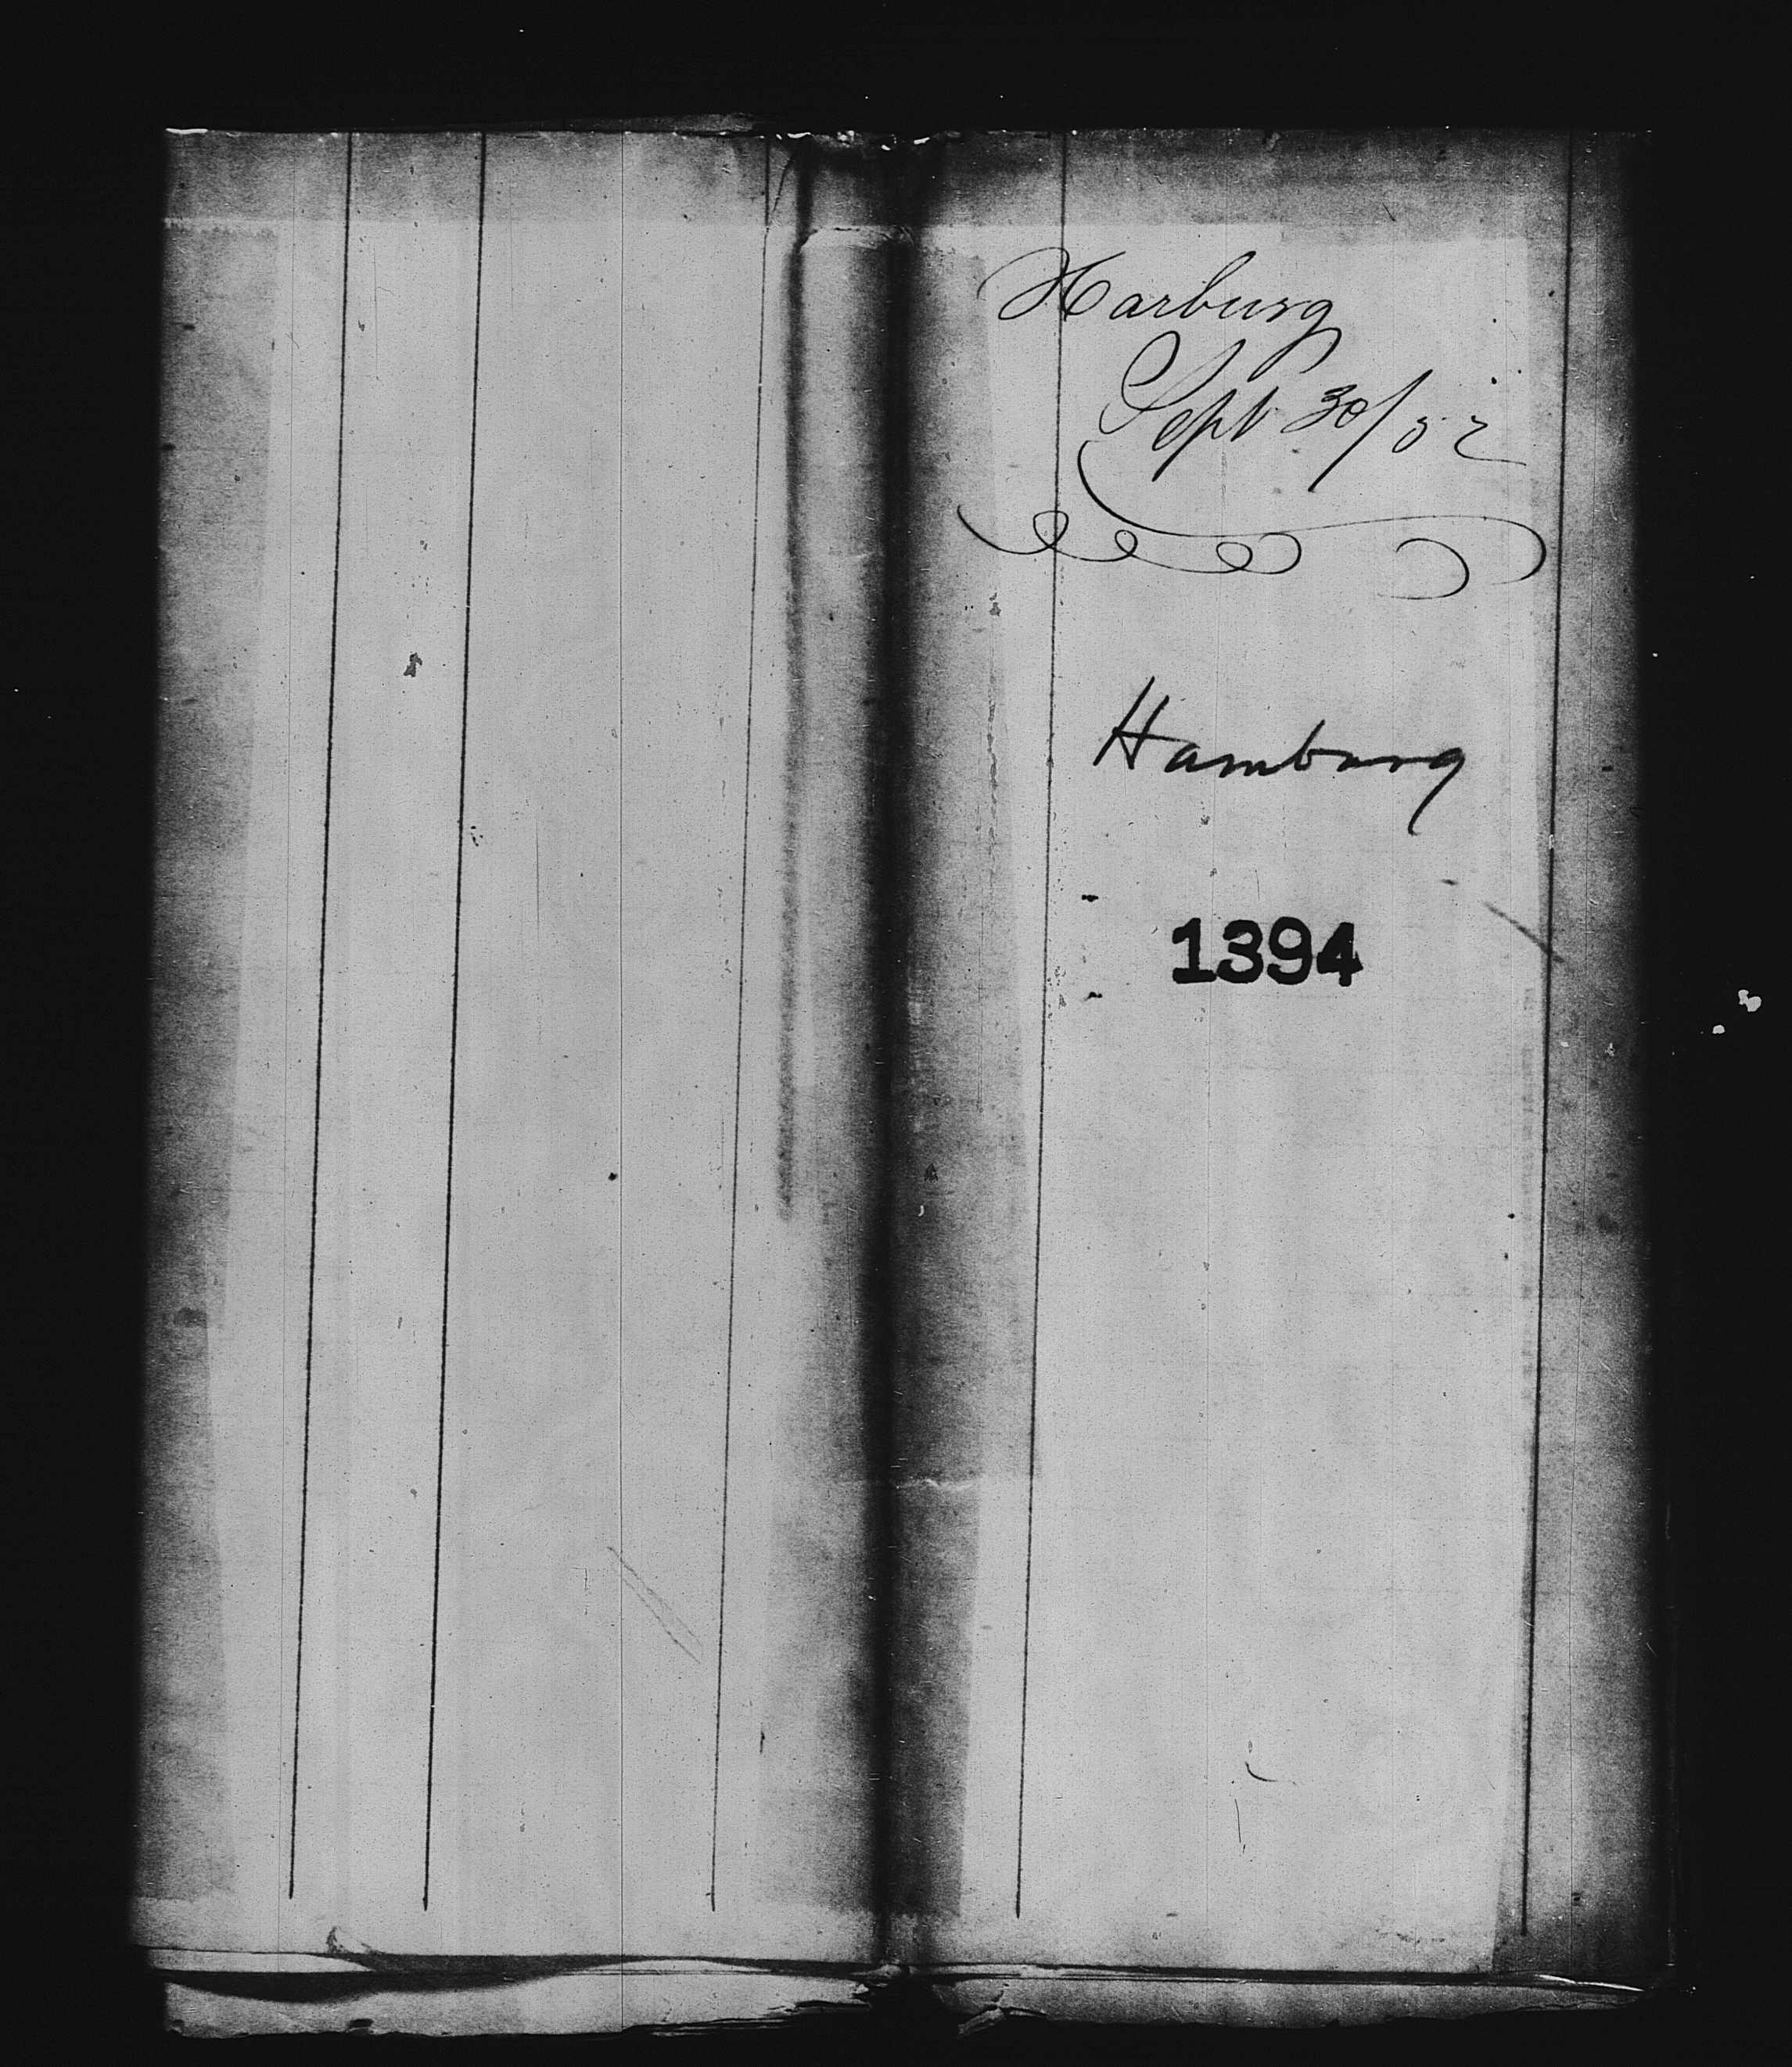 Harburg
Sept 30/52
Hamburg
1394